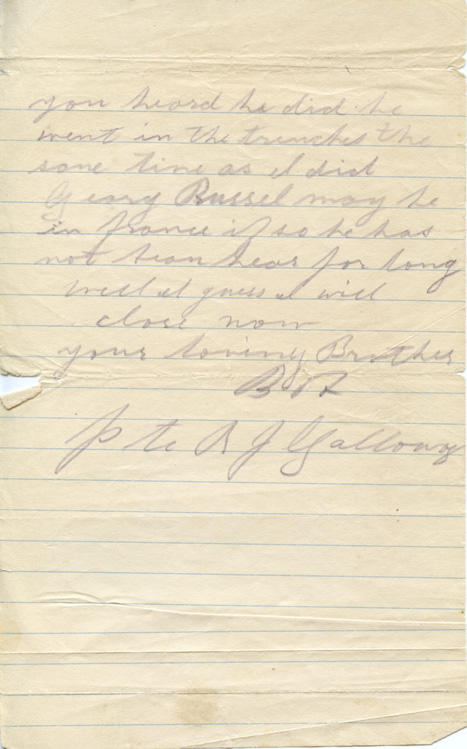 you heard he did he
went in the trenches the
same time as I did
Georg Russel may be
in france if so he has
not bean hear for long
well I guess I will
close now
your loving Brother
Pte R J Galloway